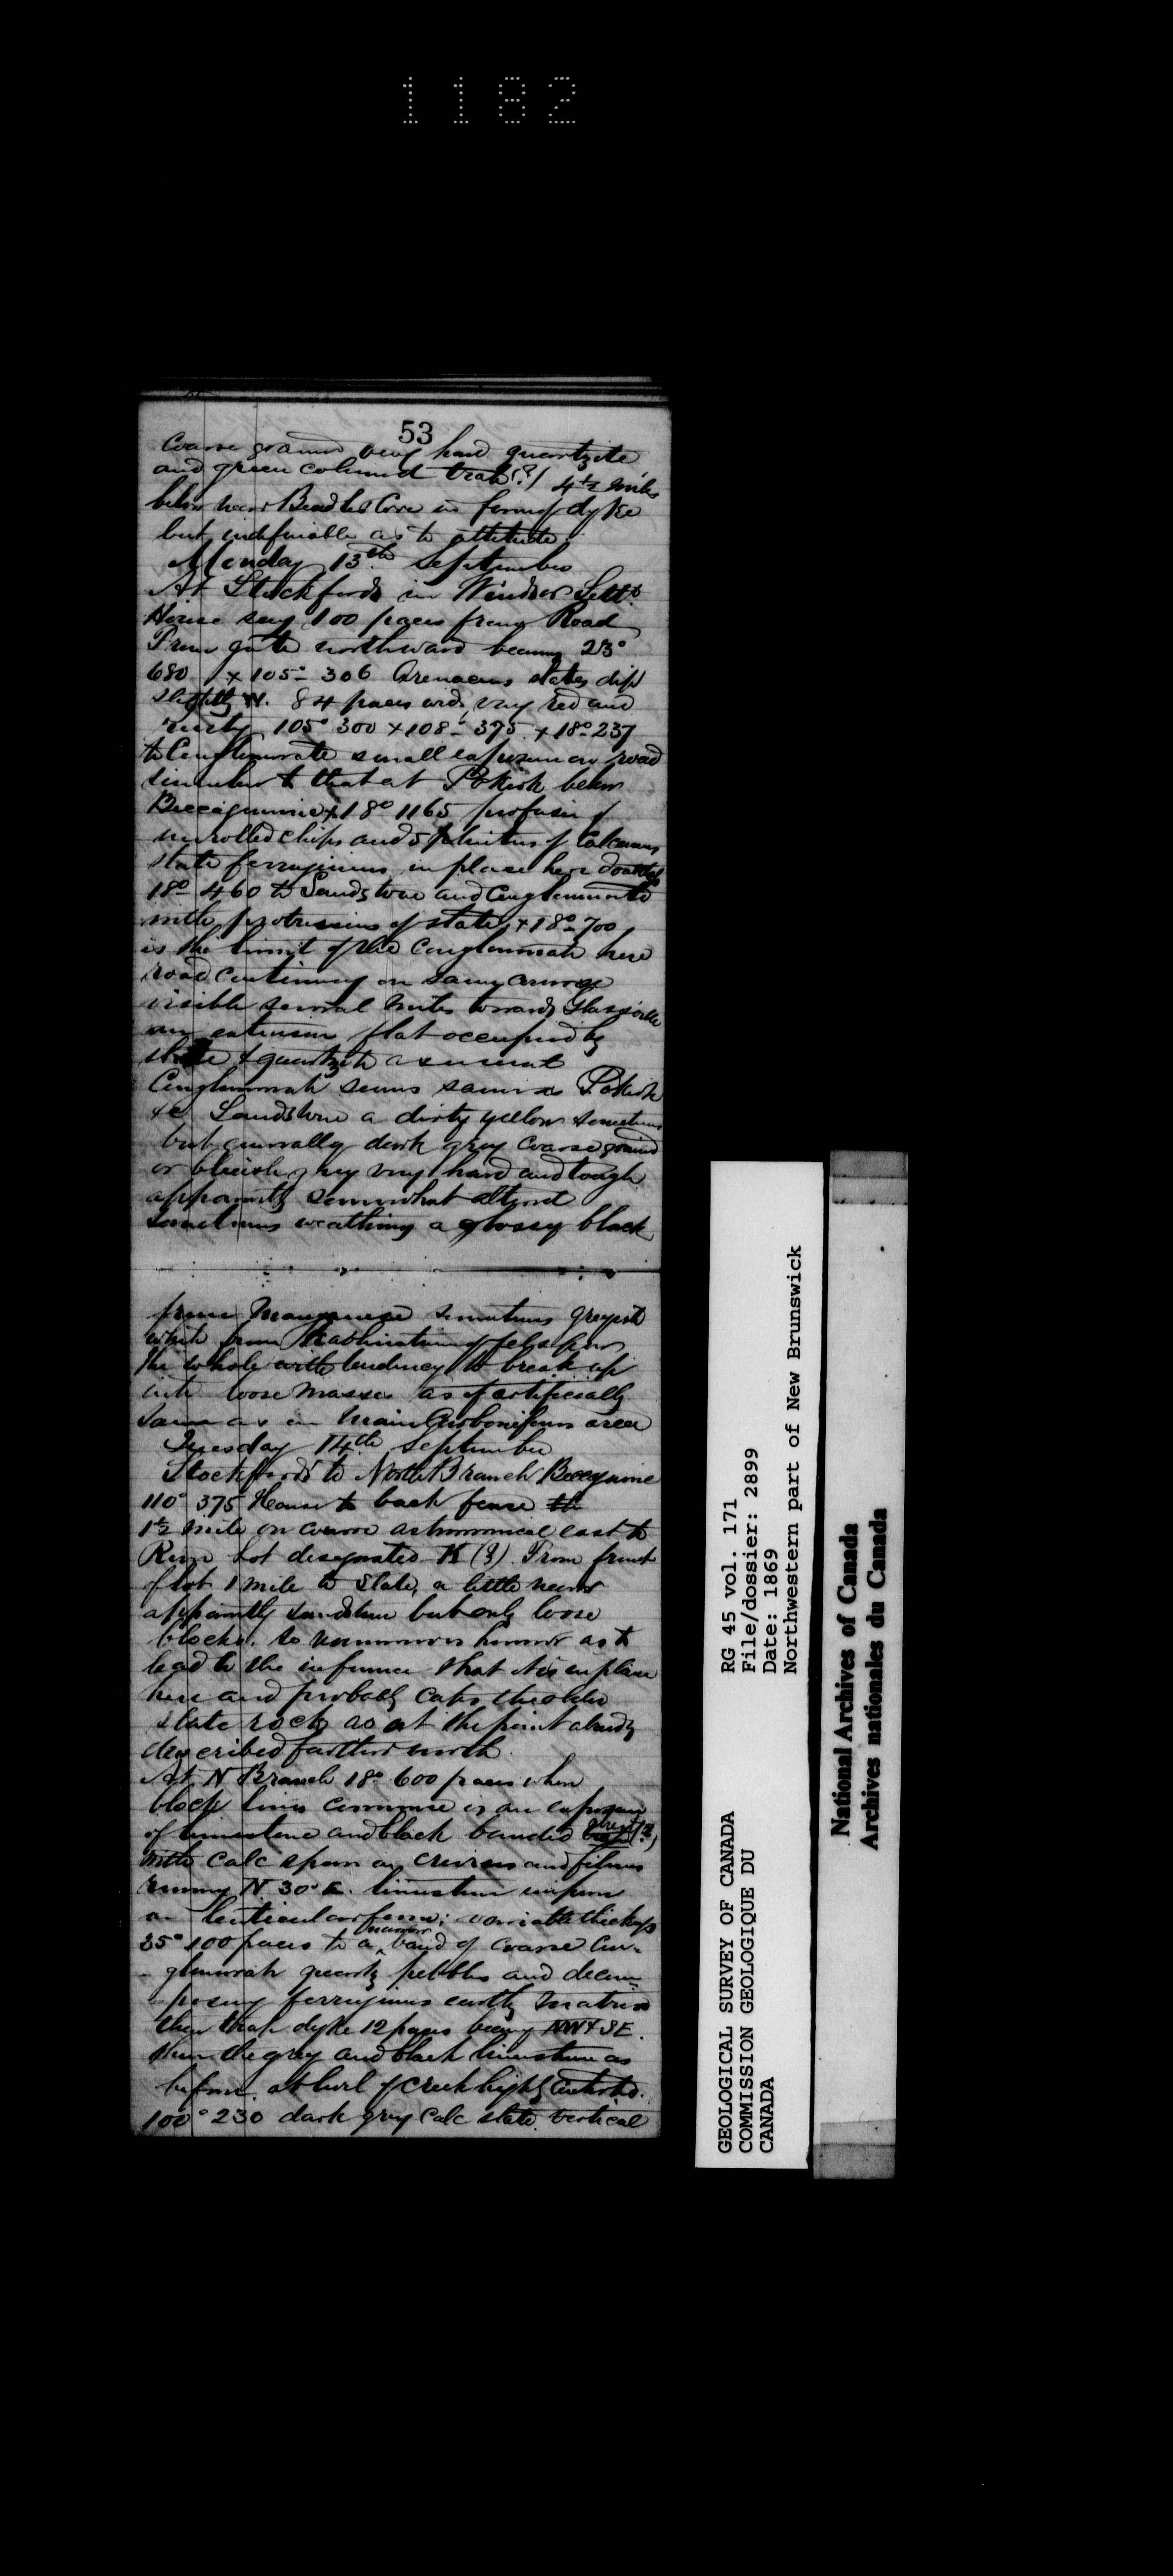 1182
53
coarse grained very hard quartzite
and green coloured trap (?) 4½ miles
below near in form of dyke
but indefinable as to attitude.
Monday 13th September
At Stockfords in Windsor Settt
House say 100 paces from Road
From gate northward bearing 23°
680 + 105° 306 Arenaceous slates dip
slightly N. 84 paces wide, very red and
rusty 105° 300 + 108° 375 + 18° 237
to Conglomerate small exposure on road
similar to that at Pokiok below
Beccaguimic + 18° 1165 profusion of
unrolled chips and splinters of Calcareous
slate ferruginous in place here doubtless
18° 460 to Sandstone and Conglomerate
with protrusions of slate, + 18° 700
is the limit of the Conglomerate here
road continuing on same course
visible several miles towards Glassville
an extensive flat occupied by
slate & quartzite as usual
Conglomerate seems same as Pokiok
&c Sandstone a dirty yellow sometimes
but generally dark grey coarse grained
or bluish grey very hard and tough
apparently somewhat altered
sometimes weathing a glossy black
from Manganese sometimes greyish
white from Kaolinization of felspar
the whole with tendency to break up
into loose masses as if artificially
same as in Main Carboniferous area
Tuesday 14th September
Stockfords to North Branch
110° 375 House to back fence the
1½ mile on course astronomical east to
River Lot designated K (?) From front
of lot 1 mile to Slate, a little nearer
apparently sandstone but only loose
blocks, so numerous however as to
lead to the inference that it is in place
here and probably caps the older
slate rocks as at the point already
described farther north.
At N Branch 18° 600 paces when
block lines commence is an exposure
of limestone and black banded (?)
with calc spar in crevices and films
running N 30° E. limestone
in lenticular form; variable thickness
25° 100 paces to a narrow band of coarse Con-
glomerate quartz pebbles and decom-
posing ferruginous earthy matrix
then trap dyke 12 paces bearing NW & SE.
then the grey and black limestone as
before. at of creek highly contorted.
100° 230 dark grey calc slate vertical
GEOLOGICAL SURVEY OF CANADA
COMMISSION GEOLOGIQUE DU
CANADA
RG 45 vol. 171
File/dossier: 2899
Date: 1869
Northwestern part of New Brunswick
National Archives of Canada
Archives nationales du Canada